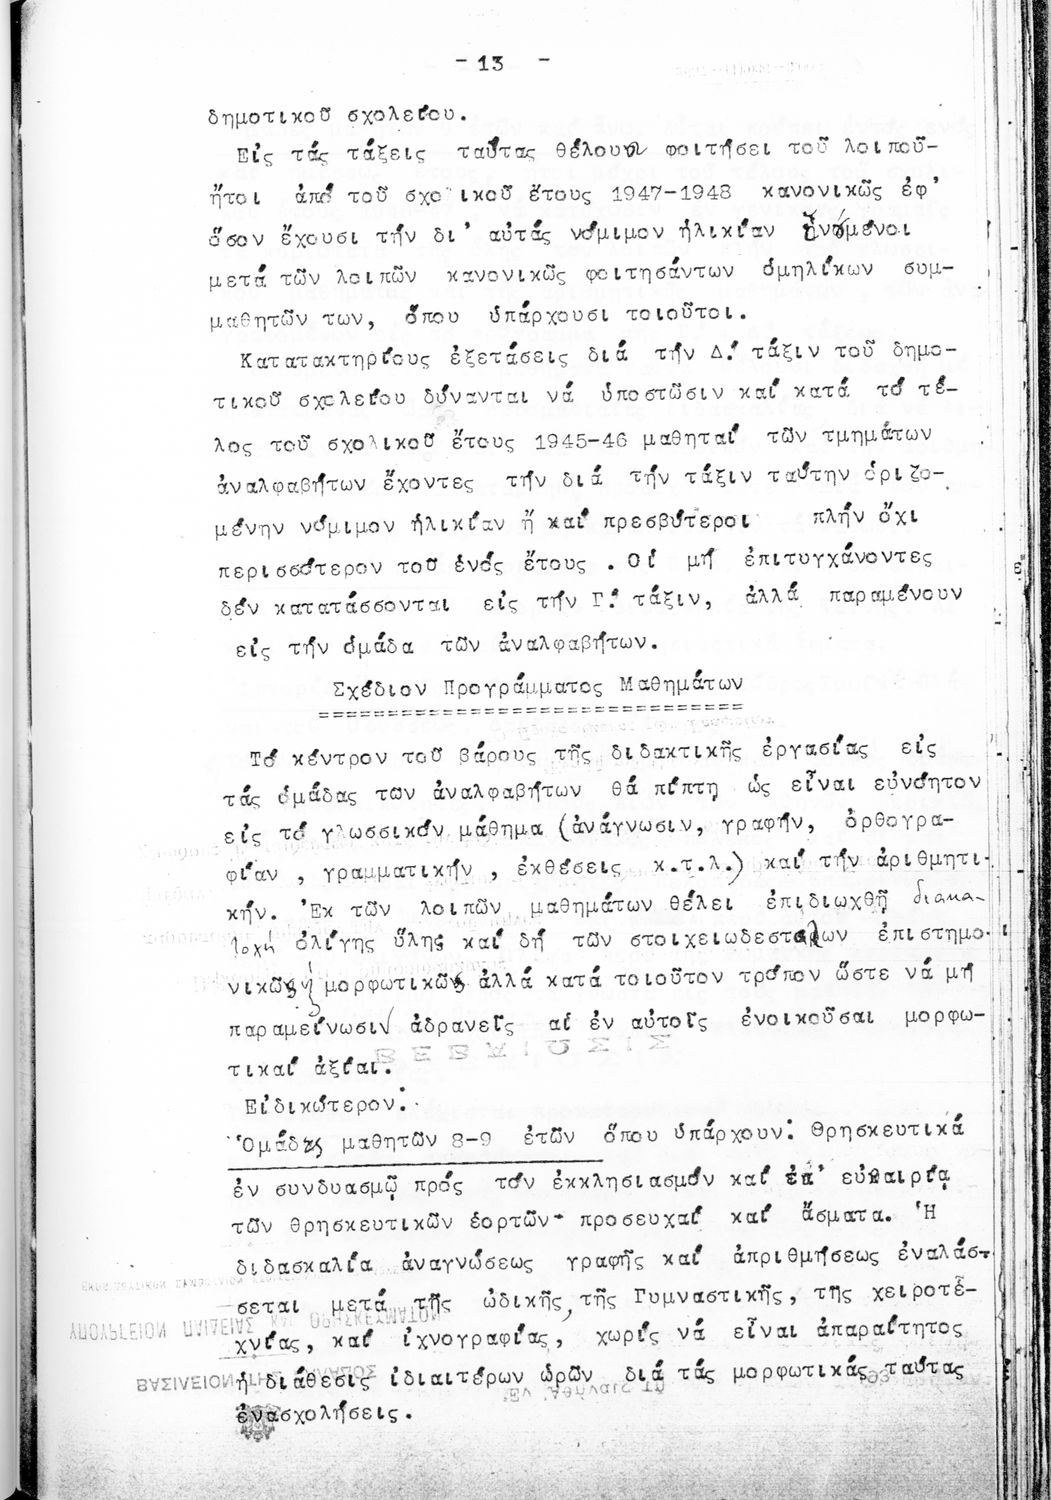 - 13 -
δημοτικοῦ σχολείου.
Εἰς τάς τάξεις ταύτας θέλουν φοιτήσει τοῦ λοιποῦ-
ἤτοι ἀπό τοῦ σχολικοῦ ἔτους 1947-1948 κανονικῶς ἐφ'
ὅσον ἔχουσι τήν δι' αὐτάς νόμιμον ἡλικίαν ἑνούμενοι
μετά τῶν λοιπῶν κανονικῶς φοιτησάντων ὁμηλίκων συμ-
μαθητῶν των, ὅπου ὑπάρχουσι τοιοῦτοι.
Κατατακτηρίους ἐξετάσεις διά τήν Δ! τάξιν τοῦ δημο-
τικοῦ σχολείου δύνανται νά ὑποστῶσιν καί κατά τό τέ-
λος τοῦ σχολικοῦ ἔτους 1945-46 μαθηταί τῶν τμημάτων
ἀναλφαβήτων ἔχοντες τήν διά τήν τάξιν ταύτην ὁριζο-
μένην νόμιμον ἡλικίαν ἤ καί πρεσβύτεροι πλήν ὄχι
περισσότερον τοῦ ἑνός ἔτους . Οἱ μή ἐπιτυγχάνοντες
δέν κατατάσσονται εἰς τήν Γ! τάξιν, ἀλλά παραμένουν
εἰς τήν ὁμάδα τῶν ἀναλφαβήτων.
Σχέδιον Προγράμματος Μαθημάτων
===============================
Τό κέντρον τοῦ βάρους τῆς διδακτικῆς ἐργασίας εἰς
τάς ὁμάδας των ἀναλφαβήτων θά πίπτῃ ὡς εἶναι εὐνόητον
εἰς τό γλωσσικόν μάθημα (ἀνάγνωσιν, γραφήν, ὀρθογρα-
φίαν , γραμματικήν , ἐκθέσεις κ.τ.λ.) καί τήν ἀριθμητι-
κήν. Ἐκ τῶν λοιπῶν μαθημάτων θέλει ἐπιδιωχθῆ διακα-
τοχή ὀλίγης ὕλης καί δή τῶν στοιχειωδεστάτων ἐπιστημο-
νικῶς ἤ μορφωτικῶς ἀλλά κατά τοιοῦτον τρόπον ὥστε νά μή
παραμείνωσιν ἀδρανεῖς αἱ ἐν αὐτοῖς ἐνοικοῦσαι μορφω-
τικαί ἀξίαι.
Εἰδικώτερον:
Ὁμάδες μαθητῶν 8-9 ἐτῶν ὅπου ὑπάρχουν: Θρησκευτικά
ἐν συνδυασμῷ πρός τόν ἐκκλησιασμόν καί ἐπ' εὐκαιρίᾳ
τῶν θρησκευτικῶν ἑορτῶν- προσευχαί καί ἄσματα. Ἡ
διδασκαλία ἀναγνώσεως γραφῆς καί ἀπριθμήσεως ἐναλάσ-
σεται μετά τῆς ὠδικῆς, τῆς Γυμναστικῆς, της χειροτε-
χνίας, καί ἰχνογραφίας, χωρίς νά εἶναι ἀπαραίτητος
ἡ διάθεσις ἰδιαιτέρων ὡρῶν διά τάς μορφωτικάς ταύτας
ἐνασχολήσεις.
ΒΕΒΑΙΩΣΙΣ
ΥΠΟΥΡΓΕΙΟΝ ΠΑΙΔΕΙΑΣ ΚΑΙ ΘΡΗΣΚΕΥΜΑΤΩΝ
ΒΑΣΙΛΕΙΟΝ ΤΗΣ ΕΛΛΑΔΟΣ